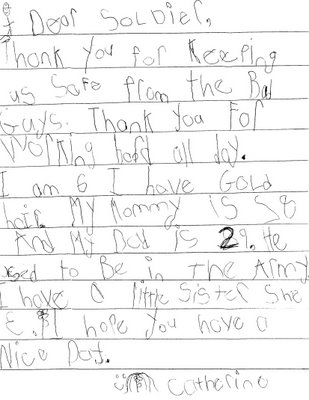 Dear Soldier,
Thank you for Keeping
us safe from the Bad
Guys. Thank you For
Working hard all day.
I am 6 I have Gold
hair. My Mommy is 28
And My Dad is 29. He
used to Be in the Army
I have a little Sister She
I hope you have a
Nice Day.
Catherine